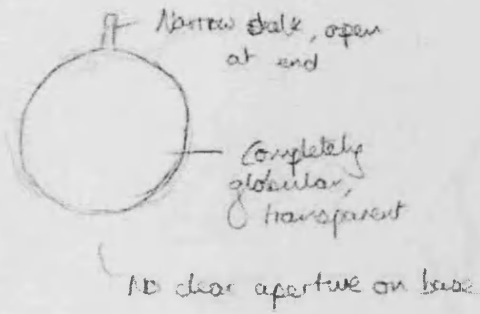 Narrow stalk, open
at end
Completely
globular,
transparent
No clear aperture on base